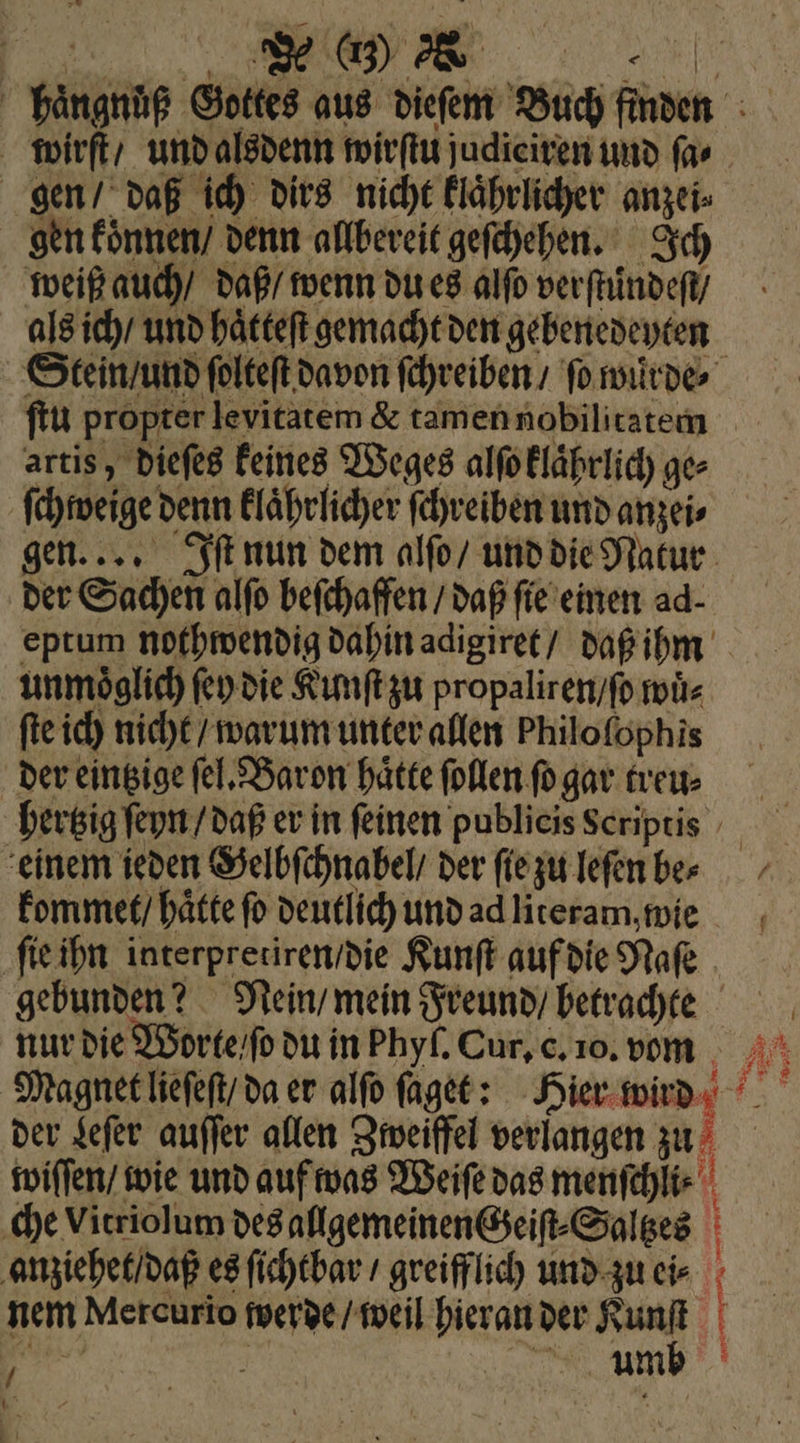 (13)
hångnůß Gottes aus dieſem Buch finden
wirſt/ und alsdenn wirſtu judiciren und ſa⸗
gen/ daß ich dirs nicht klåhrlicher anzei⸗
gen kônnen/ denn allbereit geſchehen. Ich
weiß auch/ daß/ wenn du es alſo verſtůndeſt/
als ich/ und håtteſt gemacht den gebenedeyten
Stein/und ſolteſt davon ſchreiben/ ſo wůrde⸗
ſtu propter levitatem & tamen nobilitatem
artis, dieſes keines Weges alſo klåhrlich ge⸗
ſchweige denn klåhrlicher ſchreiben und anzei⸗
gen.... Iſt nun dem alſo/ und die Natur
der Sachen alſo beſchaffen/ daß ſie einen ad-
eptum nothwendig dahin adigiret/ daß ihm
unmôglich ſey die Kunſt zu propaliren/ſo wů⸗
ſte ich nicht/ warum unter allen Philoſophis
der eintzige ſel. Baron håtte ſollen ſo gar treu⸗
hertzig ſeyn/ daß er in ſeinen publicis Scriptis
einem ieden Gelbſchnabel/ der ſie zu leſen be⸗
kommet/ håtte ſo deutlich und ad literam, wie
ſie ihn interpretiren/die Kunſt auf die Naſe
gebunden? Nein/ mein Freund/ betrachte
nur die Worte/ſo du in Phyſ. Cur. c. 10. vom
Magnet lieſeſt/ da er alſo ſaget: Hier wird
der Leſer auſſer allen Zweiffel verlangen zu
wiſſen/ wie und auf was Weiſe das menſchli⸗
che Vitriolum des allgemeinen Geiſt⸗Saltzes
anziehet/daß es ſichtbar/ greifflich und zu ei⸗
nem Mercurio werde/ weil hieran der Kunſt
umb